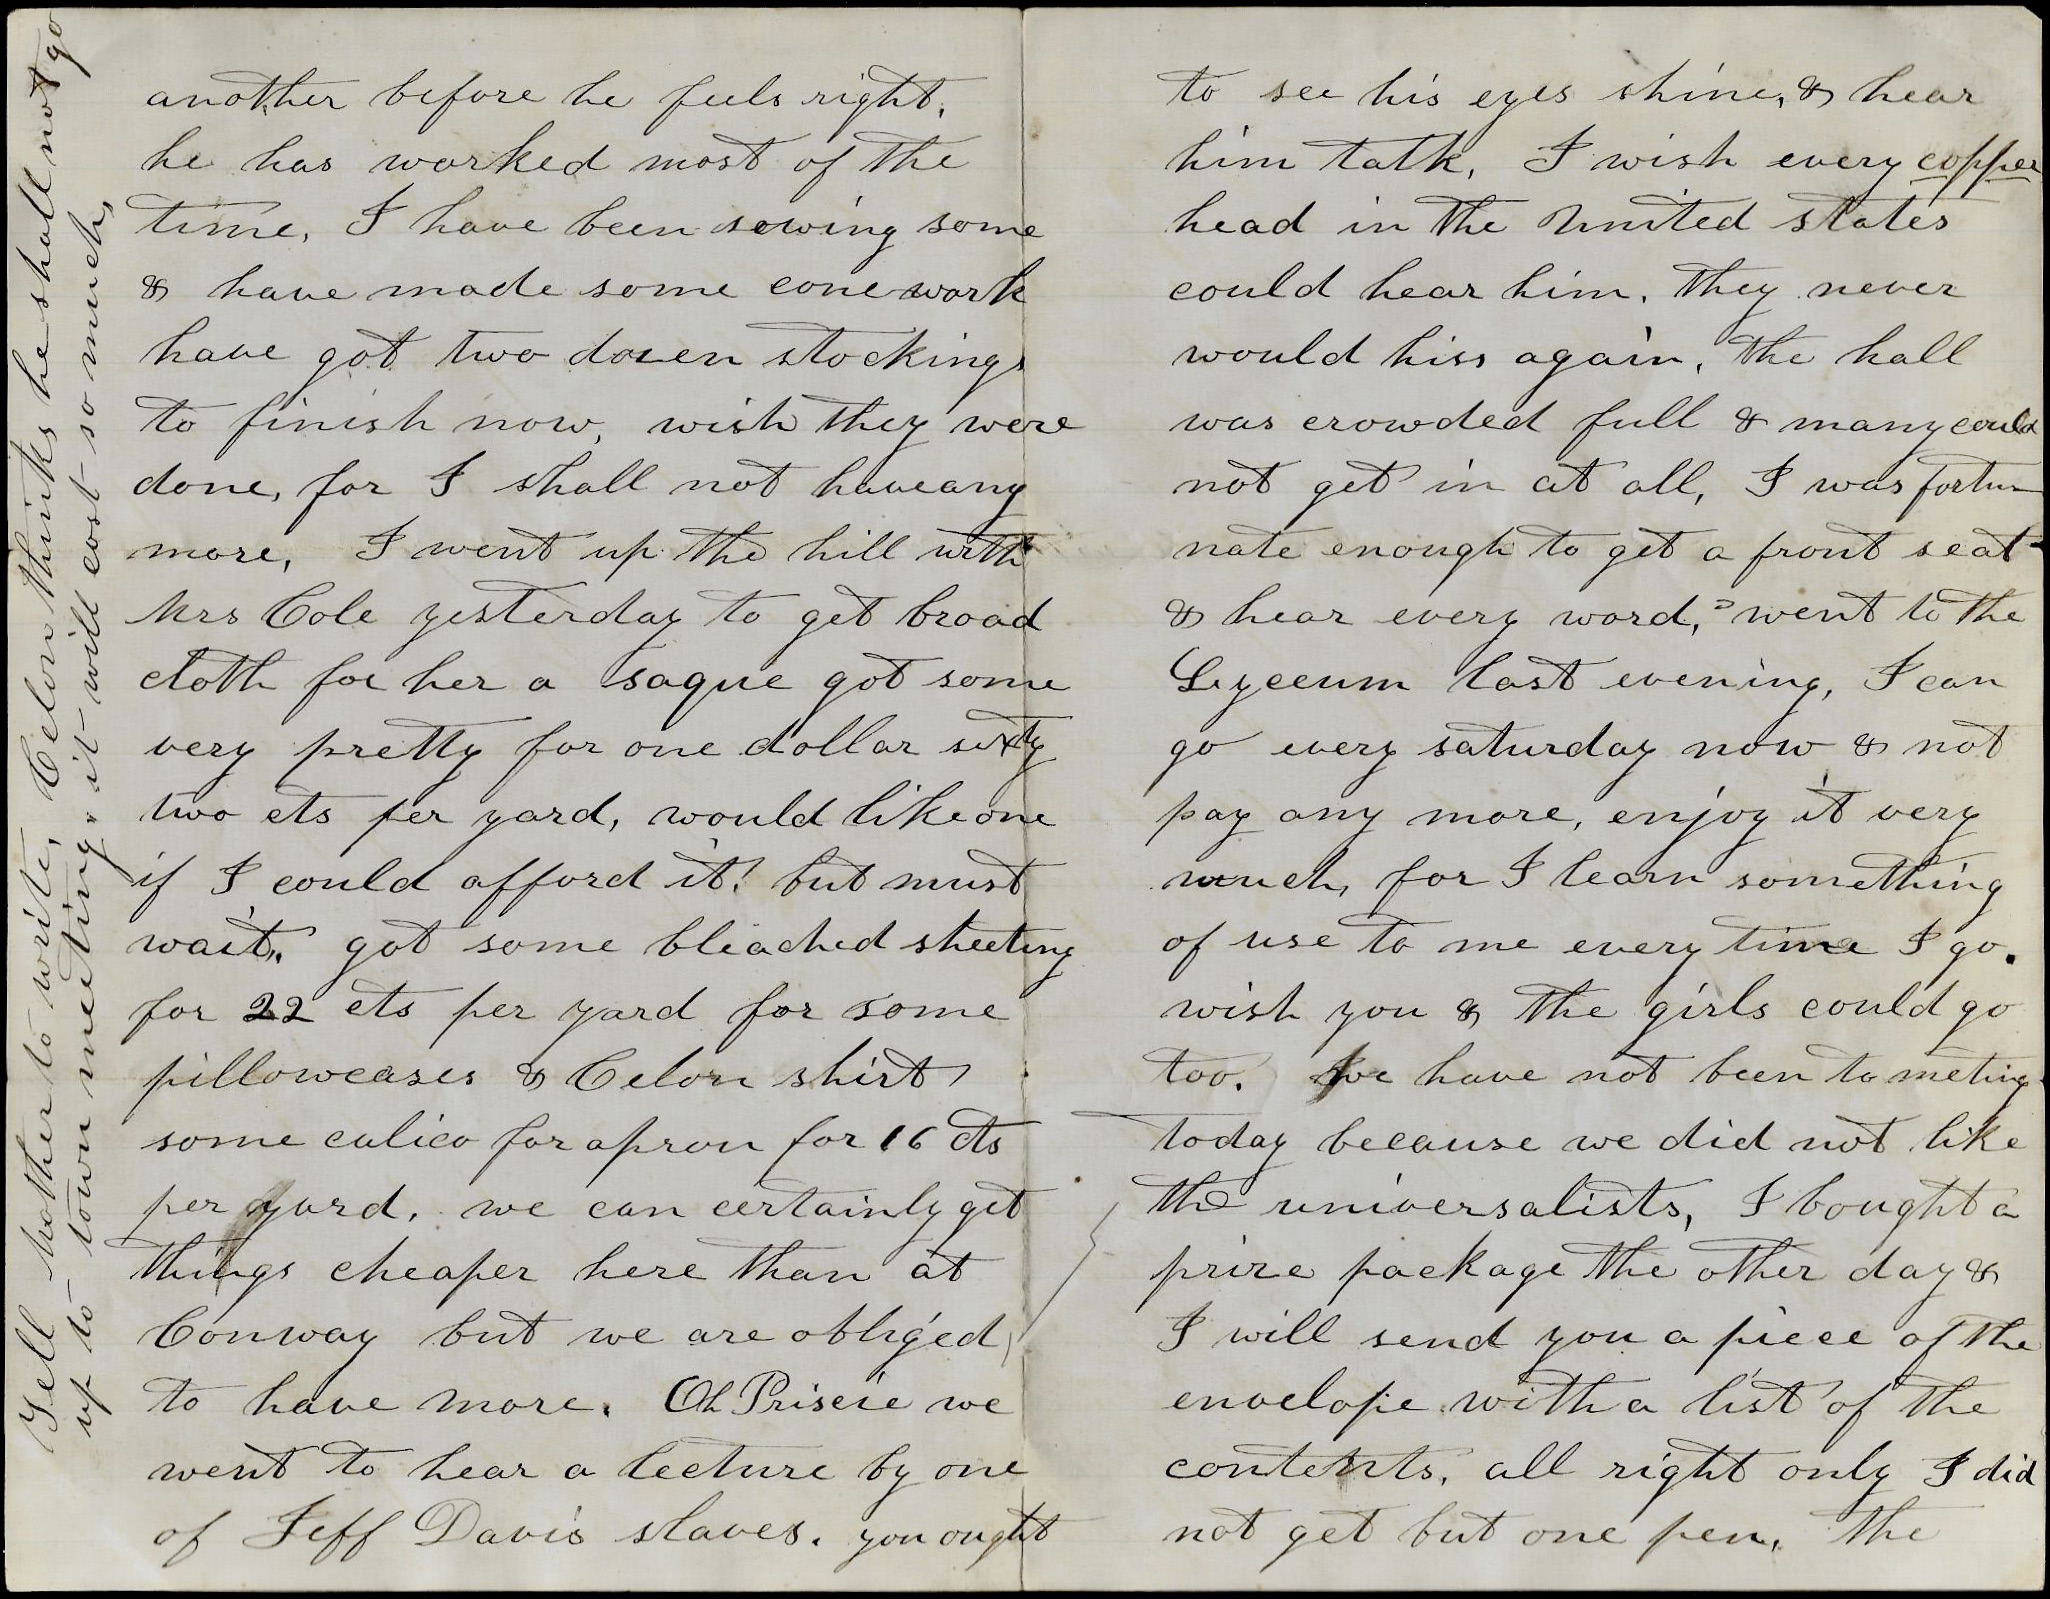 another before he feels right.
he has worked most of the
time, I have been sewing some
& have made some cone work
have got two dozen stockings
to finish now, wish they were
done, for I shall not have any
more, I went up the hill with
Mrs Cole yesterday to get broad
cloth for her a saque got some
very pretty for one dollar sixty
two cts per yard, would like one
if I could afford it! but must
wait. got some bleached sheeting
for 22 cts per yard for some
pillowcases & Celon shirt
some calico for apron for 16 cts
per yard. we can certainly get
things cheaper here than at
Conway but we are obliged
to have more. Oh Priscie we
went to hear a lecture by one
of Jeff Davis slaves. you ought
to see his eyes shine, & hear
him talk, I wish every copper
head in the United states
could hear him. they never
would hiss again. The hall
was crowded full & many could
not get in at all, I was fortu
nate enough to get a front seat
& hear every word, went to the
Lyceum last evening, I can
go every saturday now & not
pay any more, enjoy it very
much, for I learn something
of use to me every time I go.
wish you & the girls could go
too. We have not been to meting
today because we did not like
the universalists, I bought a
prize package the other day &
I will send you a piece of the
envelope with a list of the
contents, all right only I did
not get but one pen, the
Tell Mother to write, Celon thinks he shall not go
up to town meeting. it will cost so much,